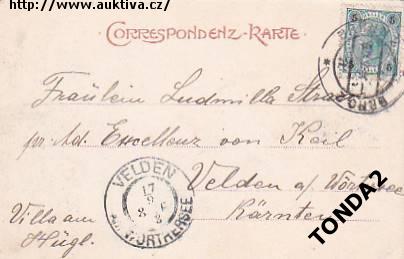 http://www.auktiva.cz/
CORRESPONDENZ-KARTE
5 5
Fräulein Ludmilla
pr. Ad. Excellenz von Keil
Velden a/ Wörthersee
Villa am Kärnten
Hügl.
VELDEN
17
9
AM WÖRTHERSEE
TONDA2